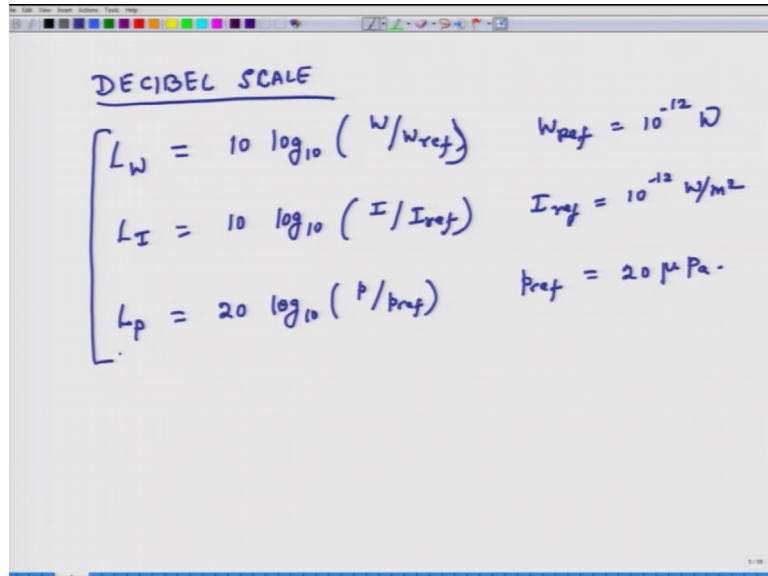 File Edit View Insert Actions Tools Help
DECIBEL SCALE
L_W = 10 log₁₀ ( W/W_ref ) W_Ref = 10⁻¹² W
L_I = 10 log₁₀ ( I / I_ref ) I_ref = 10⁻¹² W/m²
L_p = 20 log₁₀ ( p/p_ref ) p_ref = 20 μ Pa.